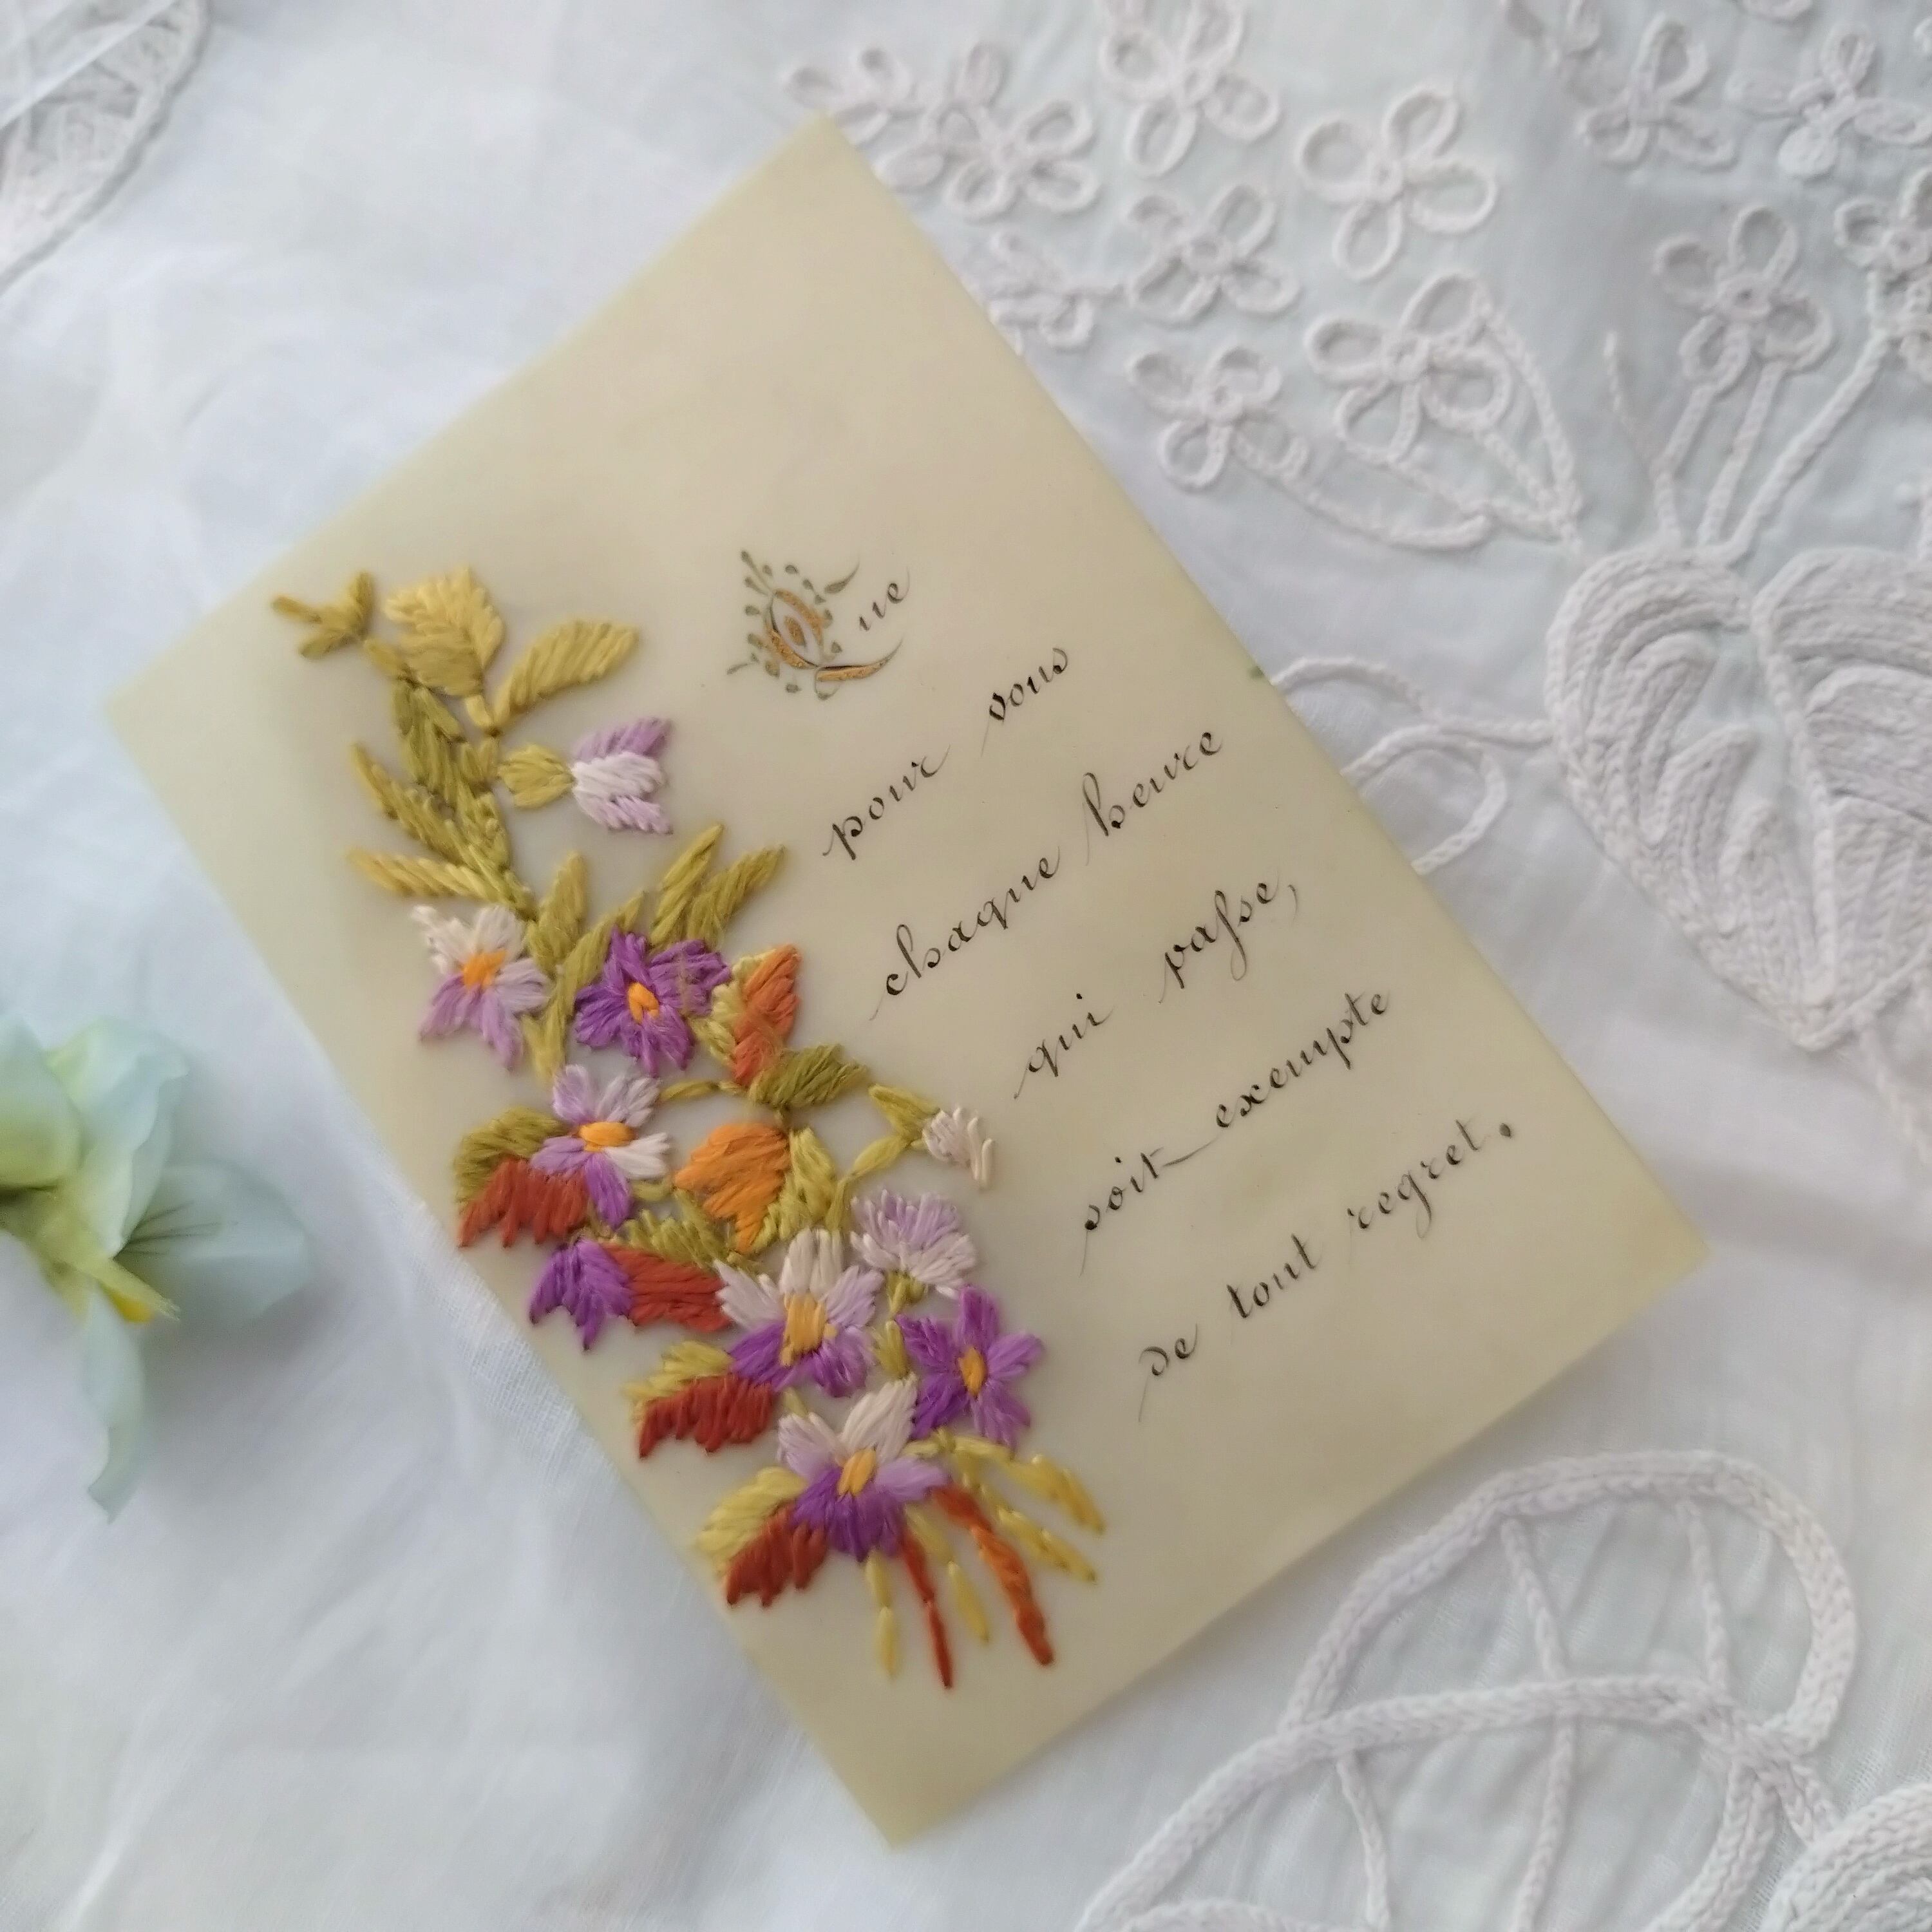 Que
pour vous
chaque heure
qui passe,
soit exempte
de tout regret.